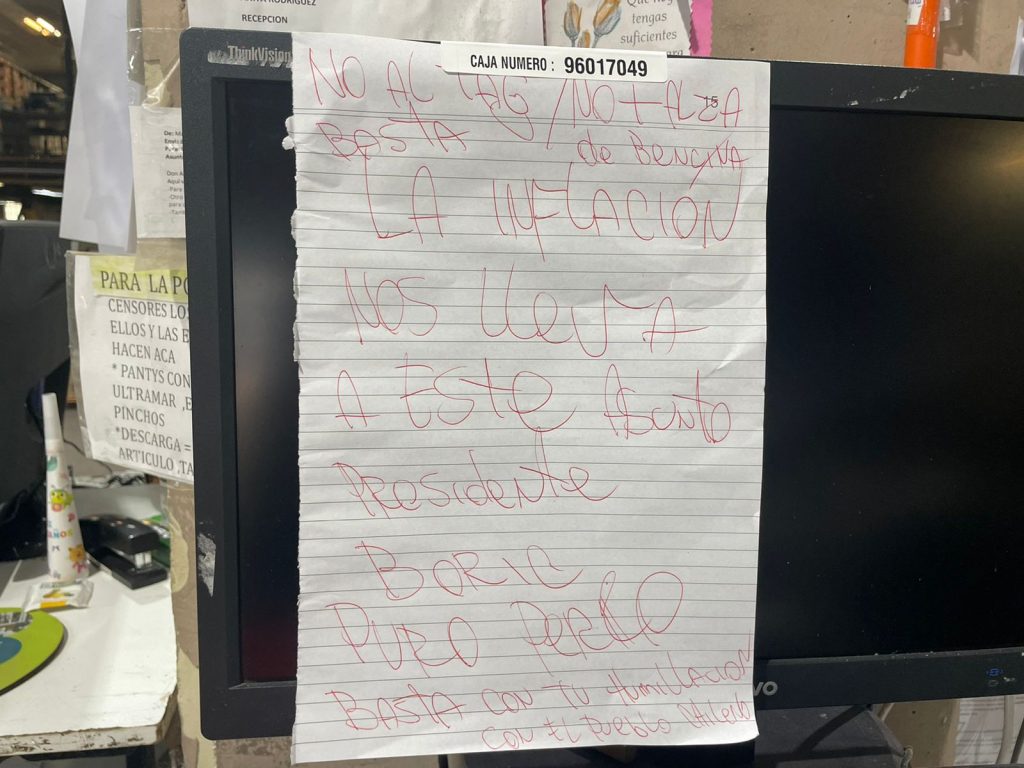 RODRIGUEZ
RECEPCION
tengas
suficientes
para
ThinkVision
CAJA NUMERO : 96017049
NO AL TAG / NO + ALZA
15
BASTA de BENCINA
LA INFLACIÓN
NOS LLEVA
A ESTE Asunto
PResideNte
BORIC
PURO PERRO
BASTA CON TU HUMILLACION
CON EL PUEBLO
PARA LA PO
CENSORES LO
ELLOS Y LAS E
HACEN ACA
* PANTYS CON
ULTRAMAR ,E
PINCHOS
*DESCARGA =
ARTICULO ,TA